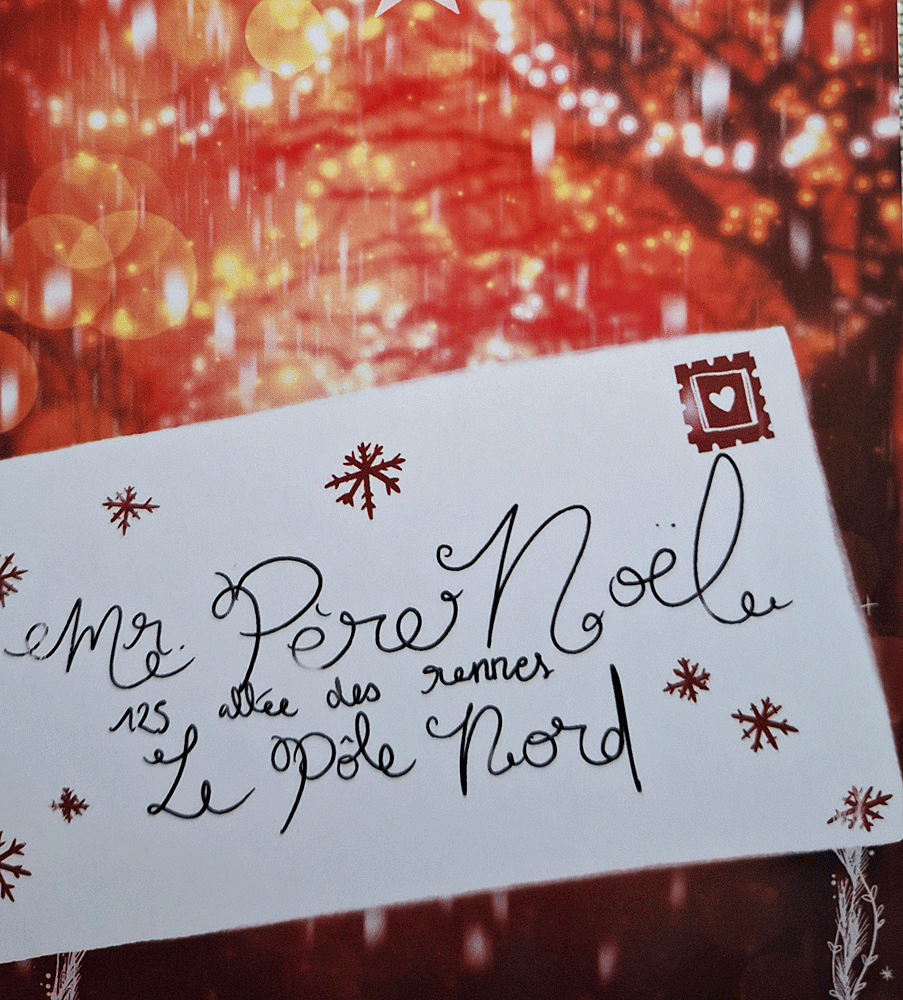 Mr. Père Noël
125 allée des rennes
Le Pôle Nord